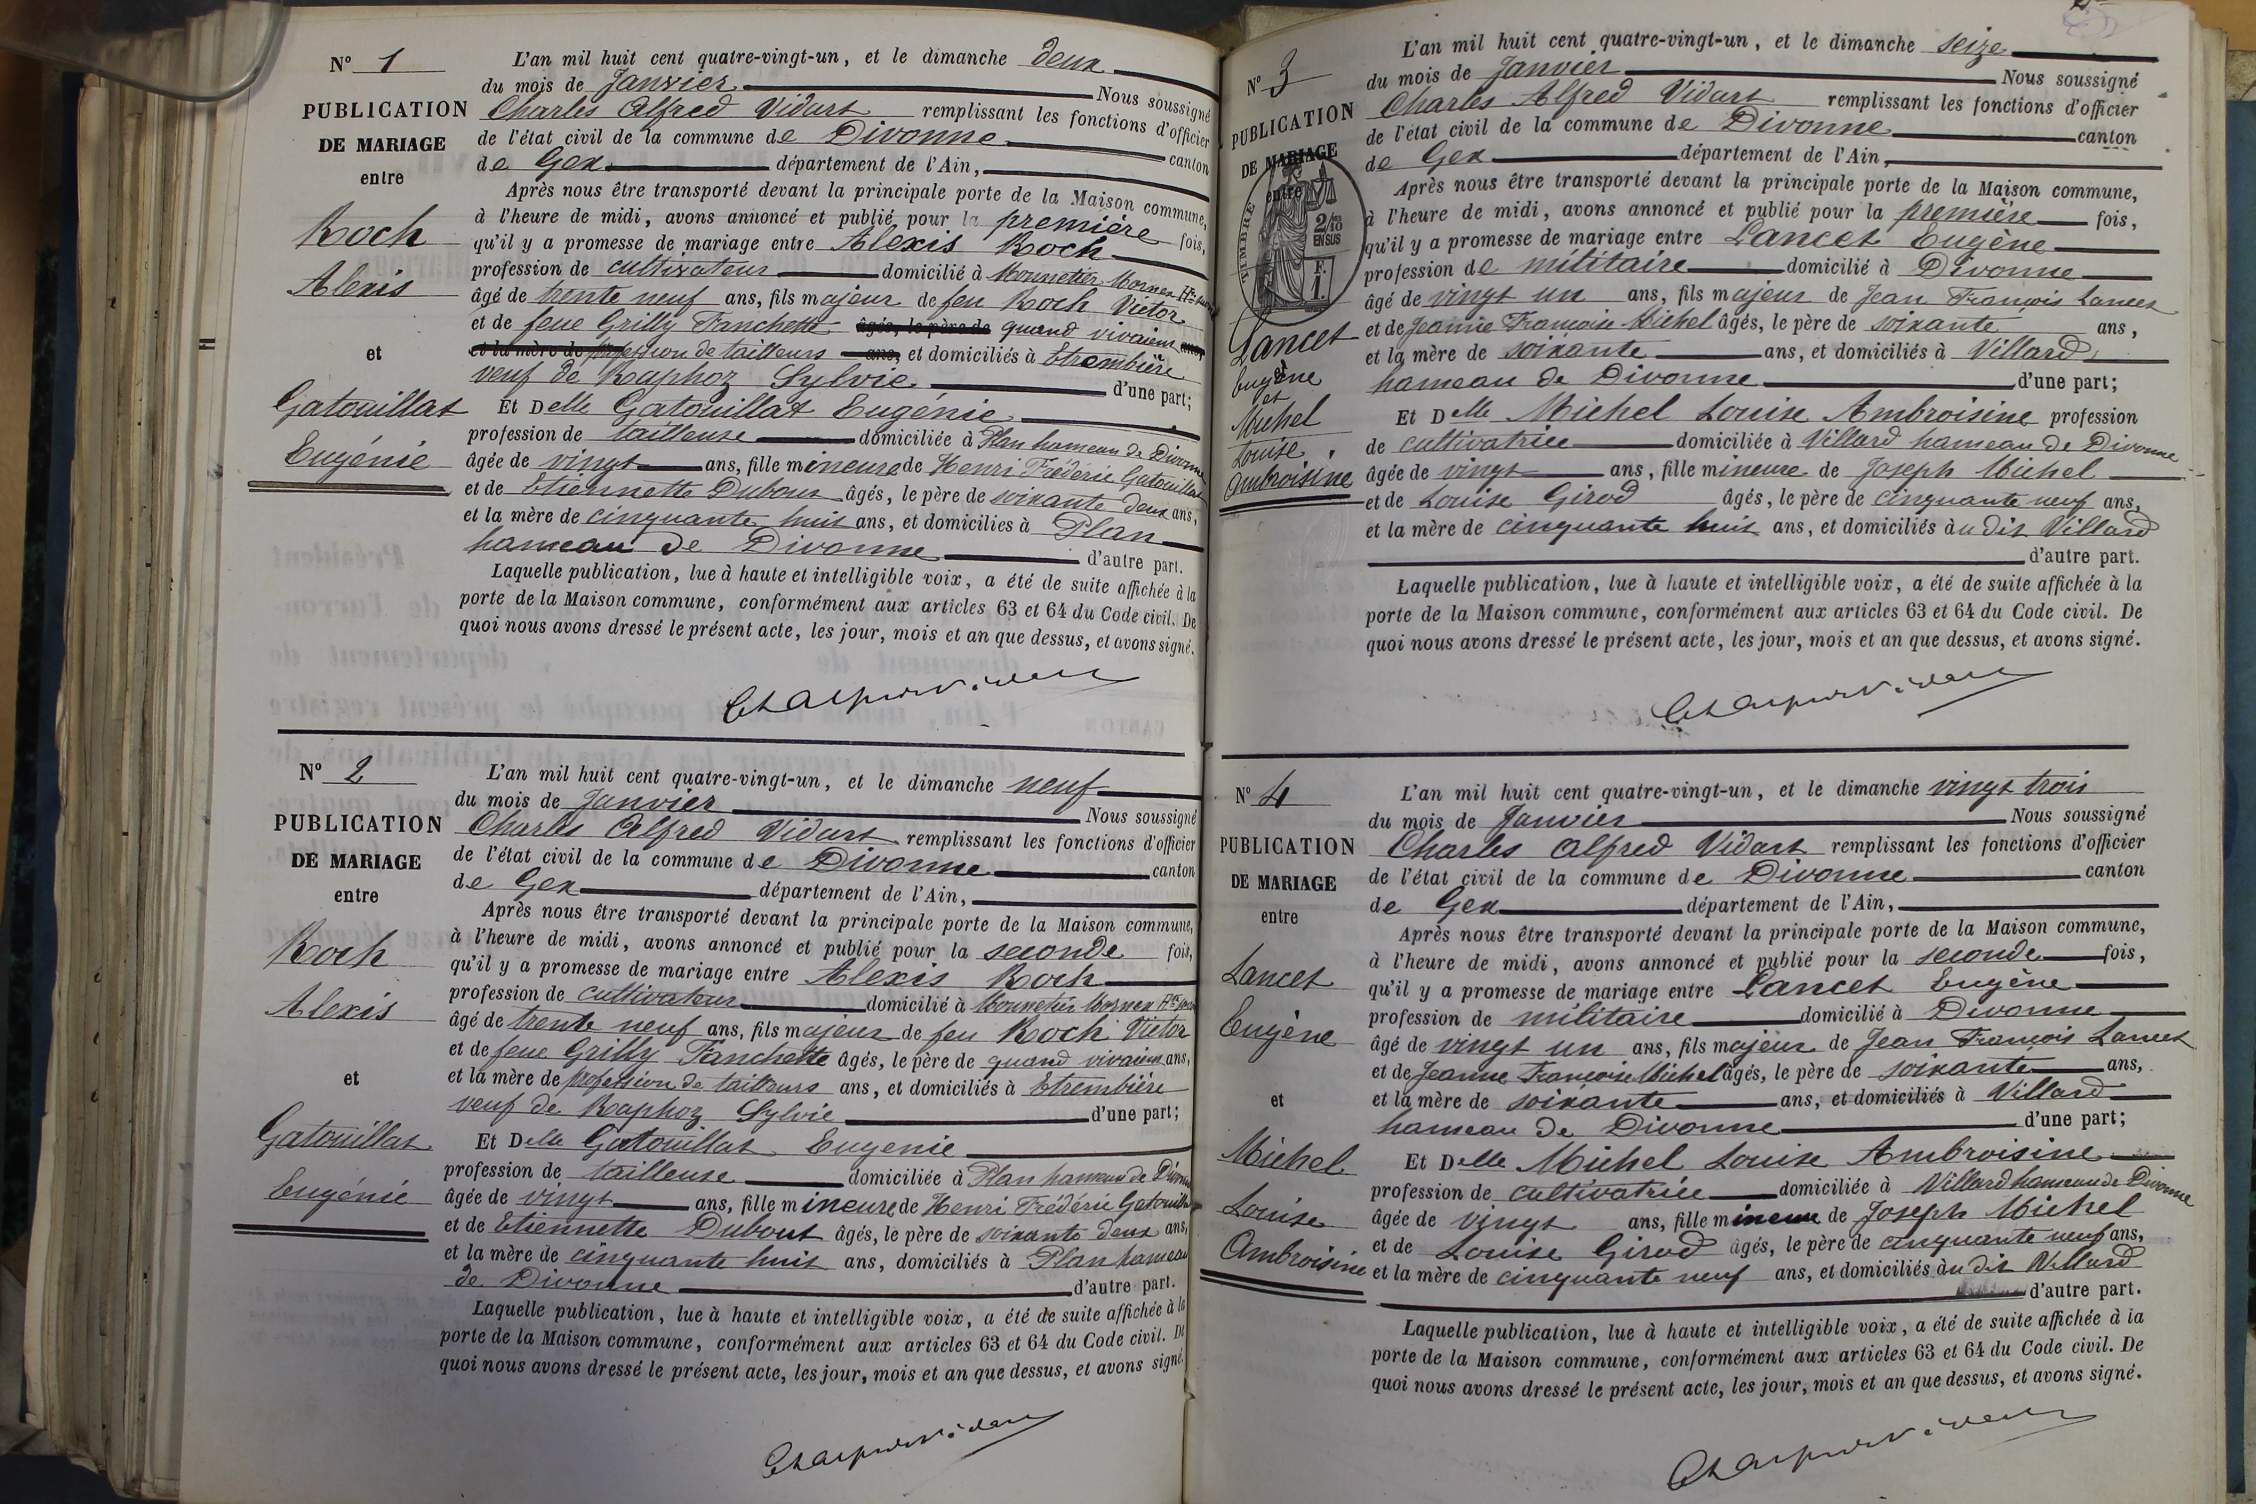 N° 1
PUBLICATION
DE MARIAGE
entre
Roch
Alexis
et
Gatouillat
Eugénie
L'an mil huit cent quatre-vingt-un, et le dimanche deux
du mois de Janvier Nous soussigné
Charles Alfred Vidart remplissant les fonctions d'officier
de l'état civil de la commune de Divonne canton
de Gex département de l'Ain,
Après nous être transporté devant la principale porte de la Maison commune,
à l'heure de midi, avons annoncé et publié pour la première fois,
qu'il y a promesse de mariage entre Alexis Roch
profession de cultivateur domicilié à Monnetier Mornex Hte
âgé de trente neuf ans, fils majeur de feu Roch Victor
et de feue Grilly Fanchette âgés, le père de quand vivaient ans,
et la mère de profession de tailleurs ans, et domiciliés à Etrembière
veuf de Raphoz Sylvie d'une part;
Et Delle Gatouillat Eugénie
profession de tailleuse domiciliée à Plan hameau de Divonne
âgée de vingt ans, fille mineure de Henri Frédéric Gatouillat
et de Etiennette Dubout âgés, le père de soixante deux ans,
et la mère de cinquante huit ans, et domicilies à Plan
hameau de Divonne d'autre part.
Laquelle publication, lue à haute et intelligible voix, a été de suite affichée à la
porte de la Maison commune, conformément aux articles 63 et 64 du Code civil. De
quoi nous avons dressé le présent acte, les jour, mois et an que dessus, et avons signé.
N° 2
PUBLICATION
DE MARIAGE
entre
Roch
Alexis
et
Gatouillat
Eugénie
L'an mil huit cent quatre-vingt-un, et le dimanche neuf
du mois de Janvier Nous soussigné
Charles Alfred Vidart remplissant les fonctions d'officier
de l'état civil de la commune de Divonne canton
de Gex département de l'Ain,
Après nous être transporté devant la principale porte de la Maison commune,
à l'heure de midi, avons annoncé et publié pour la seconde fois,
qu'il y a promesse de mariage entre Alexis Roch
profession de cultivateur domicilié à Monnetier Mornex Hte
âgé de trente neuf ans, fils majeur de feu Roch Victor
et de feue Grilly Fanchette âgés, le père de quand vivaient ans,
et la mère de profession de tailleurs ans, et domiciliés à Etrembière
veuf de Raphoz Sylvie d'une part;
Et Delle Gatouillat Eugenie
profession de tailleuse domiciliée à Plan hameau de Divonne
âgée de vingt ans, fille mineure de Henri Frédéric Gatouillat
et de Etiennette Dubout âgés, le père de soixante deux ans,
et la mère de cinquante huit ans, domiciliés à Plan hameau
de Divonne d'autre part.
Laquelle publication, lue à haute et intelligible voix, a été de suite affichée à la
porte de la Maison commune, conformément aux articles 63 et 64 du Code civil. De
quoi nous avons dressé le présent acte, les jour, mois et an que dessus, et avons signé.
N° 3
PUBLICATION
DE MARIAGE
entre
TIMBRE
2/10
EN SUS
F.
1.
Lancet
Eugène
et
et
Michel
Louise
Ambroisine
L'an mil huit cent quatre-vingt-un, et le dimanche seize
du mois de Janvier Nous soussigné
Charles Alfred Vidart remplissant les fonctions d'officier
de l'état civil de la commune de Divonne canton
de Gex département de l'Ain,
Après nous être transporté devant la principale porte de la Maison commune,
à l'heure de midi, avons annoncé et publié pour la première fois,
qu'il y a promesse de mariage entre Lancet Eugène
profession de militaire domicilié à Divonne
âgé de vingt un ans, fils majeur de Jean François Lancet
et de Jeannie Françoise Michel âgés, le père de soixante ans,
et la mère de soixante ans, et domiciliés à Villard
hameau de Divonne d'une part;
Et Delle Michel Louise Ambroisine profession
de cultivatrice domiciliée à Villard hameau de Divonne
âgée de vingt ans, fille mineure de Joseph Michel
et de Louise Girod âgés, le père de cinquante neuf ans,
et la mère de cinquante huit ans, et domiciliés àu dit Villard
d'autre part.
Laquelle publication, lue à haute et intelligible voix, a été de suite affichée à la
porte de la Maison commune, conformément aux articles 63 et 64 du Code civil. De
quoi nous avons dressé le présent acte, les jour, mois et an que dessus, et avons signé.
N° 4
PUBLICATION
DE MARIAGE
entre
Lancet
Eugène
et
Michel
Louise
Ambroisine
L'an mil huit cent quatre-vingt-un, et le dimanche vingt trois
du mois de Janvier Nous soussigné
Charles Alfred Vidart remplissant les fonctions d'officier
de l'état civil de la commune de Divonne canton
de Gex département de l'Ain,
Après nous être transporté devant la principale porte de la Maison commune,
à l'heure de midi, avons annoncé et publié pour la seconde fois,
qu'il y a promesse de mariage entre Lancet Eugène
profession de militaire domicilié à Divonne
âgé de vingt un ans, fils majeur de Jean François Lancet
et de Jeanne Françoise Michel âgés, le père de soixante ans,
et la mère de soixante ans, et domiciliés à Villard
hameau de Divonne d'une part;
Et Delle Michel Louise Ambroisine
profession de cultivatrice domiciliée à Villard hameau de Divonne
âgée de vingt ans, fille mineure de Joseph Michel
et de Louise Girod âgés, le père de cinquante neuf ans,
et la mère de cinquante neuf ans, et domiciliés àu dit Villard
d'autre part.
Laquelle publication, lue à haute et intelligible voix, a été de suite affichée à la
porte de la Maison commune, conformément aux articles 63 et 64 du Code civil. De
quoi nous avons dressé le présent acte, les jour, mois et an que dessus, et avons signé.